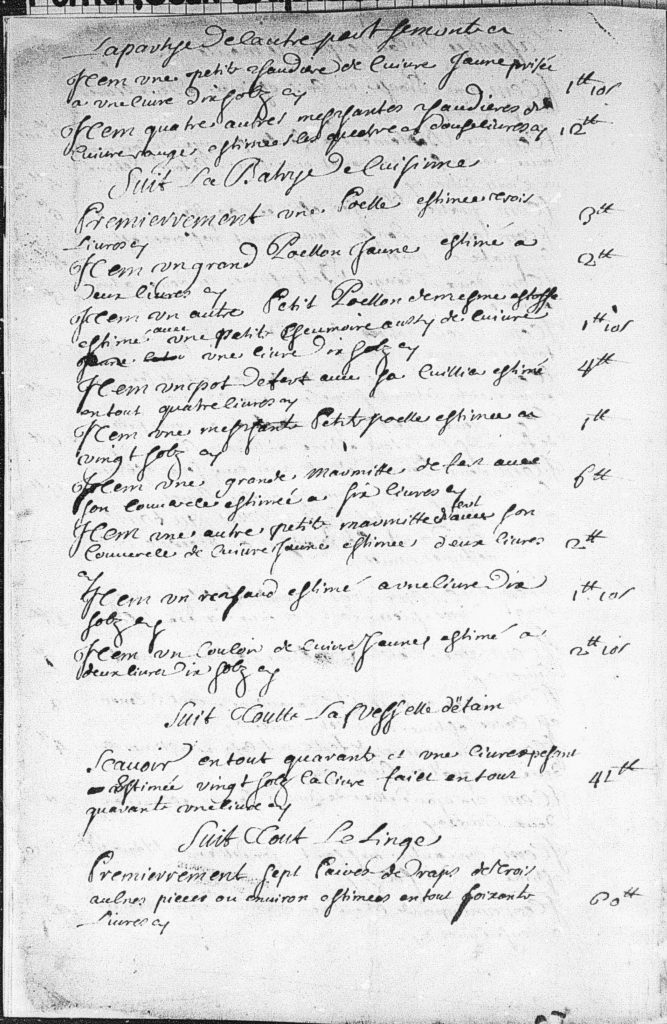 La partye de l'autre part se monte a
Item une petite chaudiere de cuivre Jaune prisée
a une livre dix solz cy 1lt 10s
Item quatre autres meschantes chaudieres de
cuivre rouges estimées les quatre a douse livres cy 12lt
Suit La Batrye de Cuisinne
Premierrement une Poelle estimee trois 3lt
Livres cy
Item un grand Poellon Jaune estimé a 2lt
deux livres cy
Item un autre Petit Poellon de mesme estoffe
estimé avec une petite Escumoire aussy de cuivre 1lt 10s
Jaune une livre dix solz cy
Item un pot de fert avec sa cuillia estimé 4lt
en tout quatre livres cy
Item une meschante Petite poelle estimee a 1lt
vingt solz cy
Item une grande marmitte de fert avec 6lt
son couvercle estimée a six livres cy
Item une autre petite marmitte de fert avec son
Couvercle de cuivre Jaune estimee deux livres 2lt
cy
Item un rechaud estimé a une livre dix 1lt 10s
solz cy
Item un Couloir de cuivre Jaunes estimé a 2lt 10s
deux livres dix solz cy
Suit Toutte La Vesselle d'étain
Scavoir en tout quarante et une livres pesant
Estimée vingt solz la livre faict en tout 41lt
quarante une livre cy
Suit Tout Le Linge
Premierrement sept Paires de Draps de trois
aulnes pieces ou environ estimees en tout soixante 60lt
Livres cy